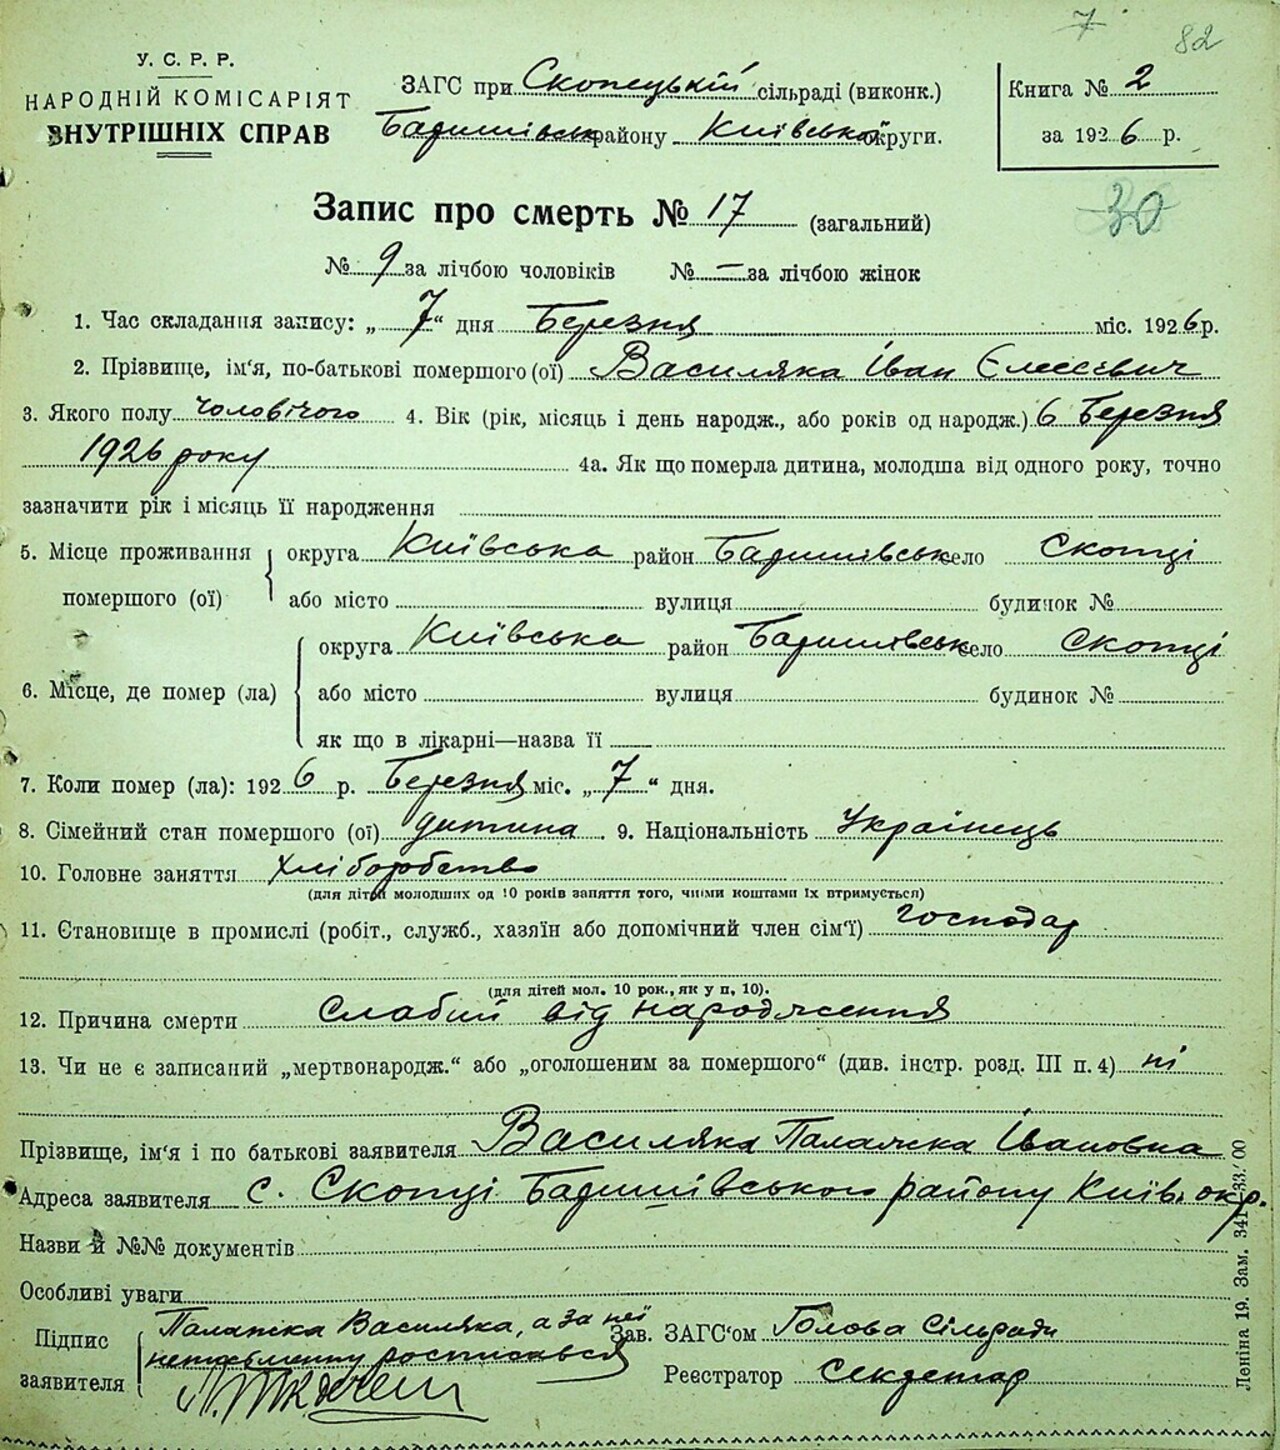 7 82
У. С. Р. Р.
НАРОДНІЙ КОМІСАРІЯТ
ВНУТРІШНІХ СПРАВ
ЗАГС при Скопецькій сільраді (виконк.)
Баришівськ району Київської округи.
Книга № 2
за 1926 р.
30
Запис про смерть № 17 (загальний)
№ 9 за лічбою чоловіків № — за лічбою жінок
1. Час складання запису: „ 7 “ дня Березня міс. 1926 р.
2. Прізвище, ім‘я, по-батькові помершого (ої) Василяка Іван Єлесєвич
3. Якого полу чоловічого 4. Вік (рік, місяць і день народж., або років од народж.) 6 Березня
1926 року 4а. Як що померла дитина, молодша від одного року, точно
зазначити рік і місяць її народження
5. Місце проживання помершого (ої) округа Київська район Баришівськ село Скопці
або місто вулиця будинок №
6. Місце, де помер (ла) округа Київська район Баришівськ село Скопці
або місто вулиця будинок №
як що в лікарні—назва її
7. Коли помер (ла): 1926 р. Березня міс. „ 7 “ дня.
8. Сімейний стан помершого (ої) дитина . 9. Національність Українець
10. Головне заняття Хліборобство
(для дітей молодших од 10 років заняття того, чиїми коштами їх втримується)
11. Становище в промислі (робіт., служб., хазяїн або допомічний член сім‘ї) господар
(для дітей мол. 10 рок., як у п, 10).
12. Причина смерти Слабий від народження
13. Чи не є записаний „мертвонародж.“ або „оголошеним за помершого“ (див. інстр. розд. III п. 4) ні
Прізвище, ім‘я і по батькові заявителя Василяка Палажка Івановна
Адреса заявителя с. Скопці Баришівського району Київ. окр.
Назви й №№ документів
Особливі уваги
Підпис заявителя Палажка Василяка, а за неї
неписьменну росписався
Зав. ЗАГС‘ом Голова Сільради
Реєстратор Секретар
Леніна 19. Зам. 341